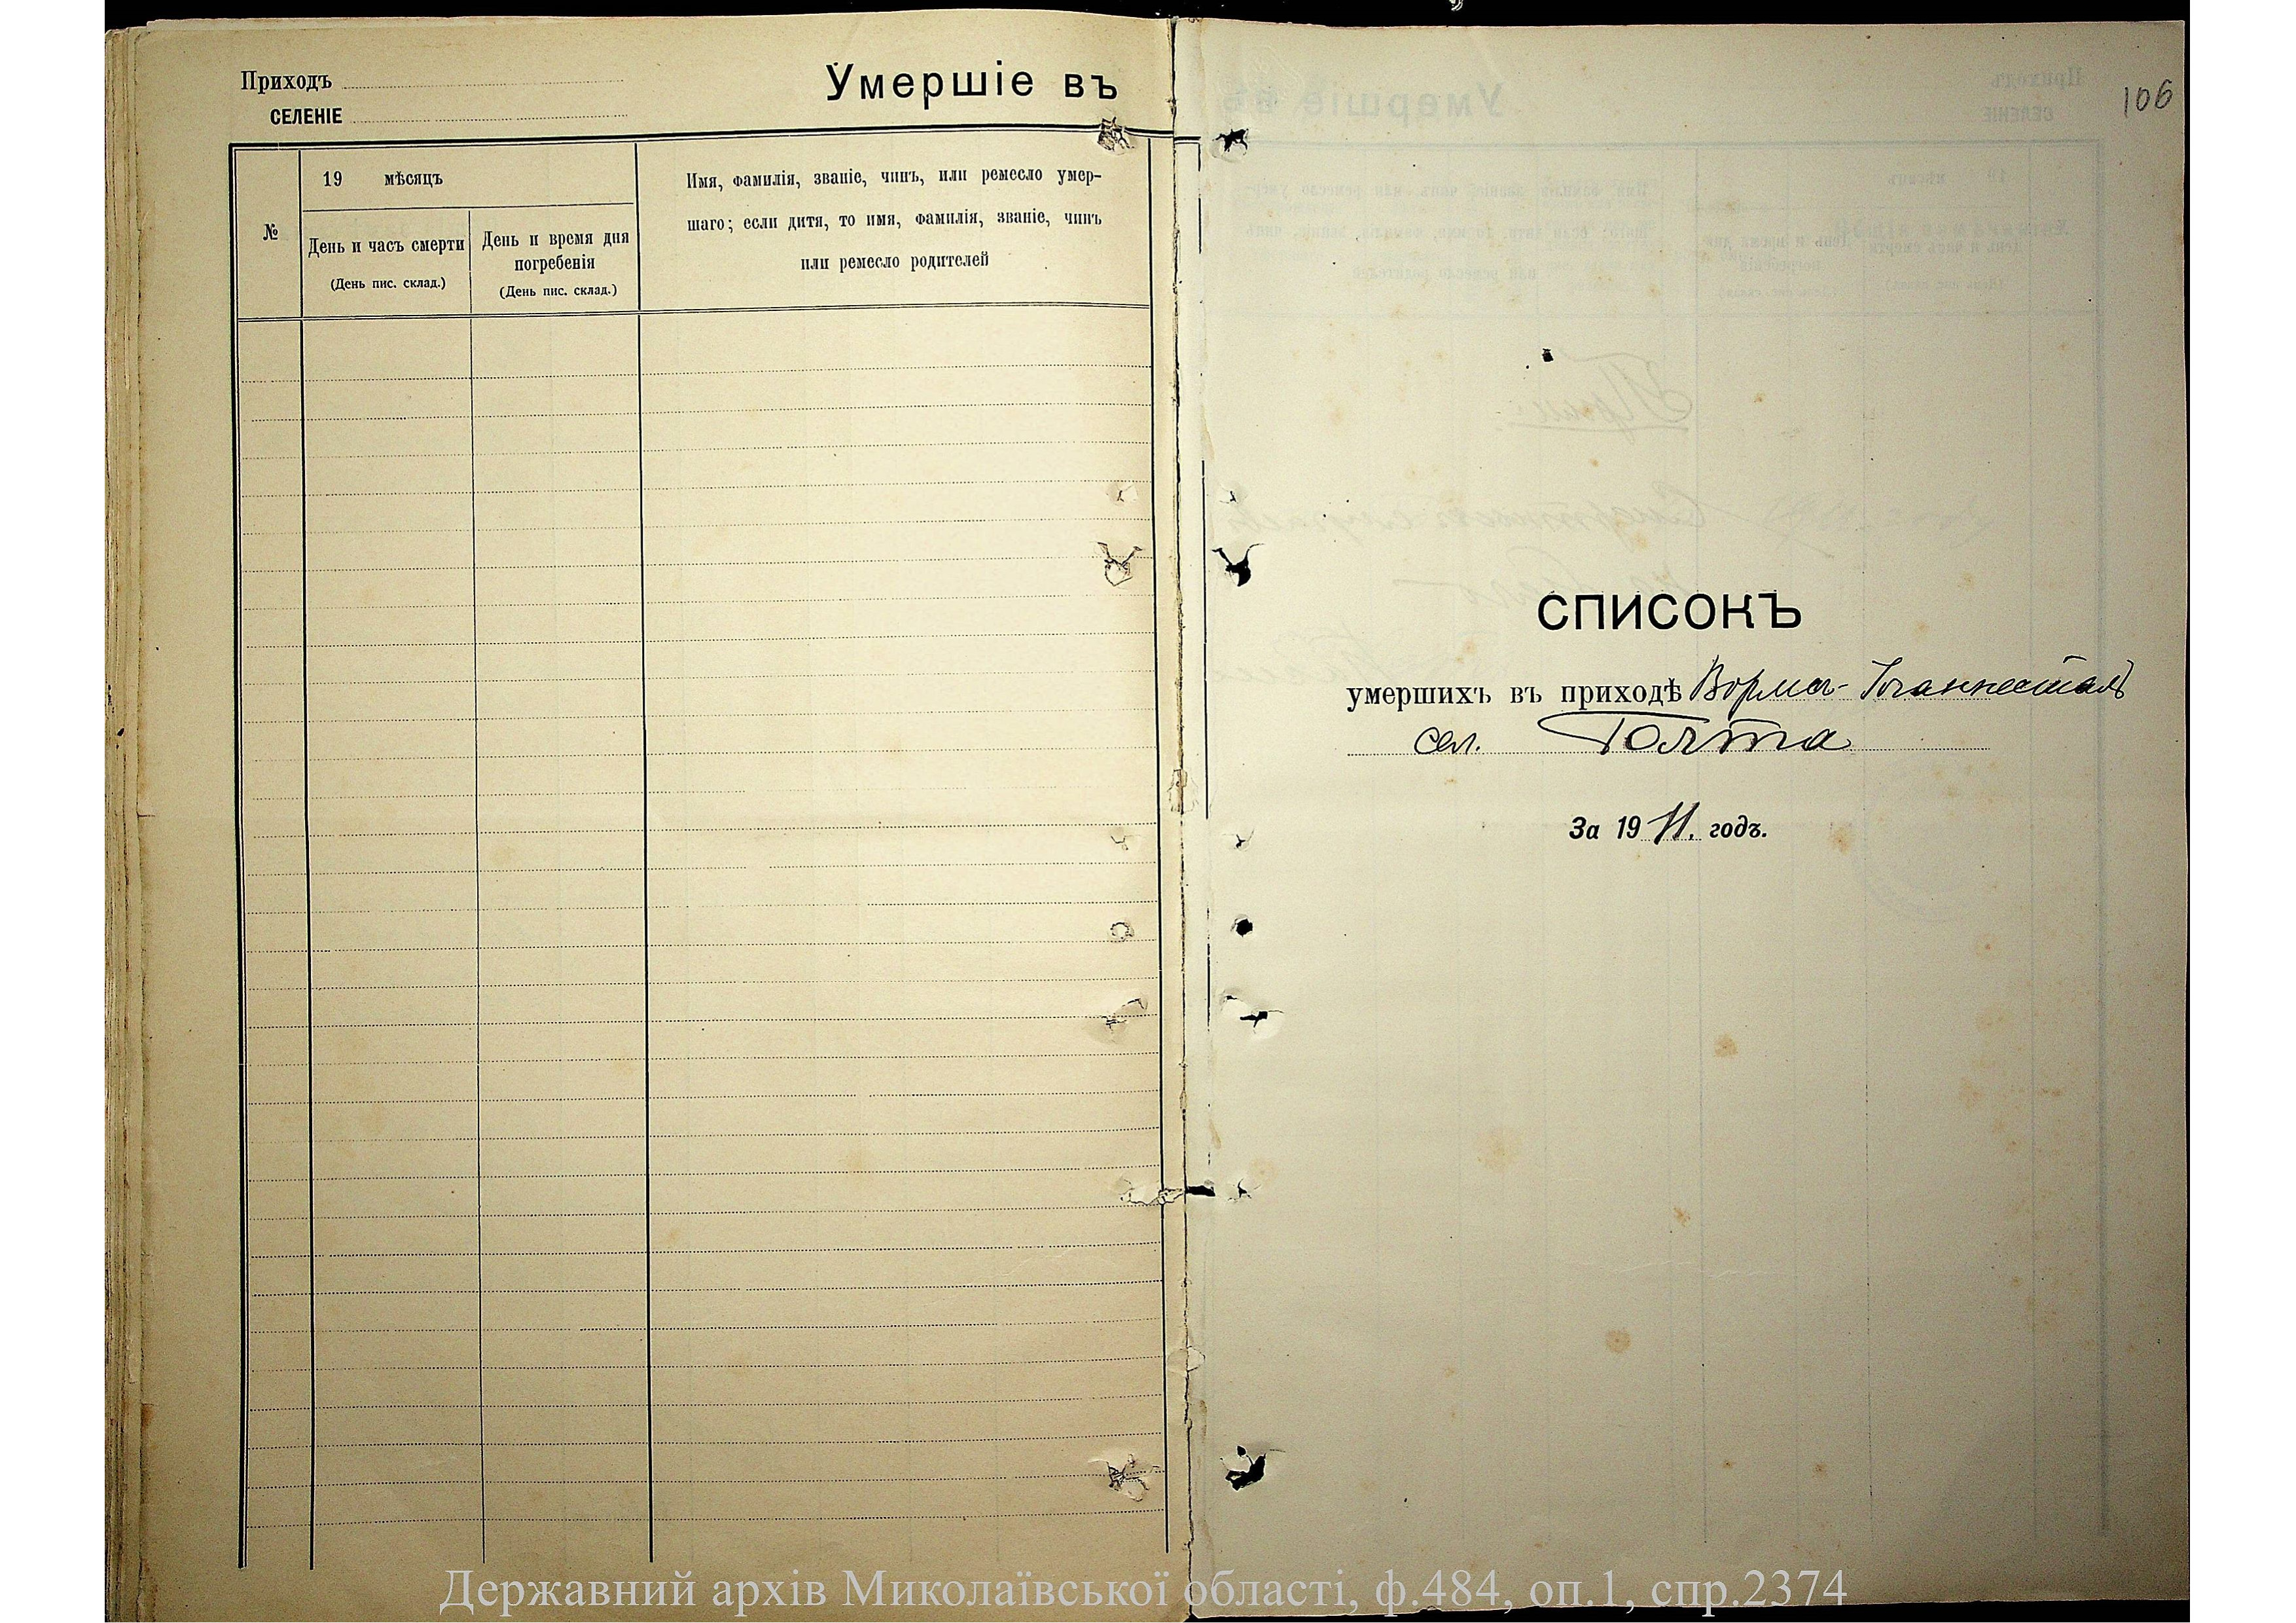 Приходъ
СЕЛЕНІЕ
Умершіе въ
№
19 мѣсяцъ
День и часъ смерти
(День пис. склад.)
День и время дня
погребенія
(День пис. склад.)
Имя, фамилія, званіе, чинъ, или ремесло умер-
шаго; если дитя, то имя, фамилія, званіе, чинъ
или ремесло родителей
106
СПИСОКЪ
умершихъ въ приходѣ Вормс-Іоганнесталь
сел. Голта
За 1911. годъ.
Державний архів Миколаївської області, ф.484, оп.1, спр.2374